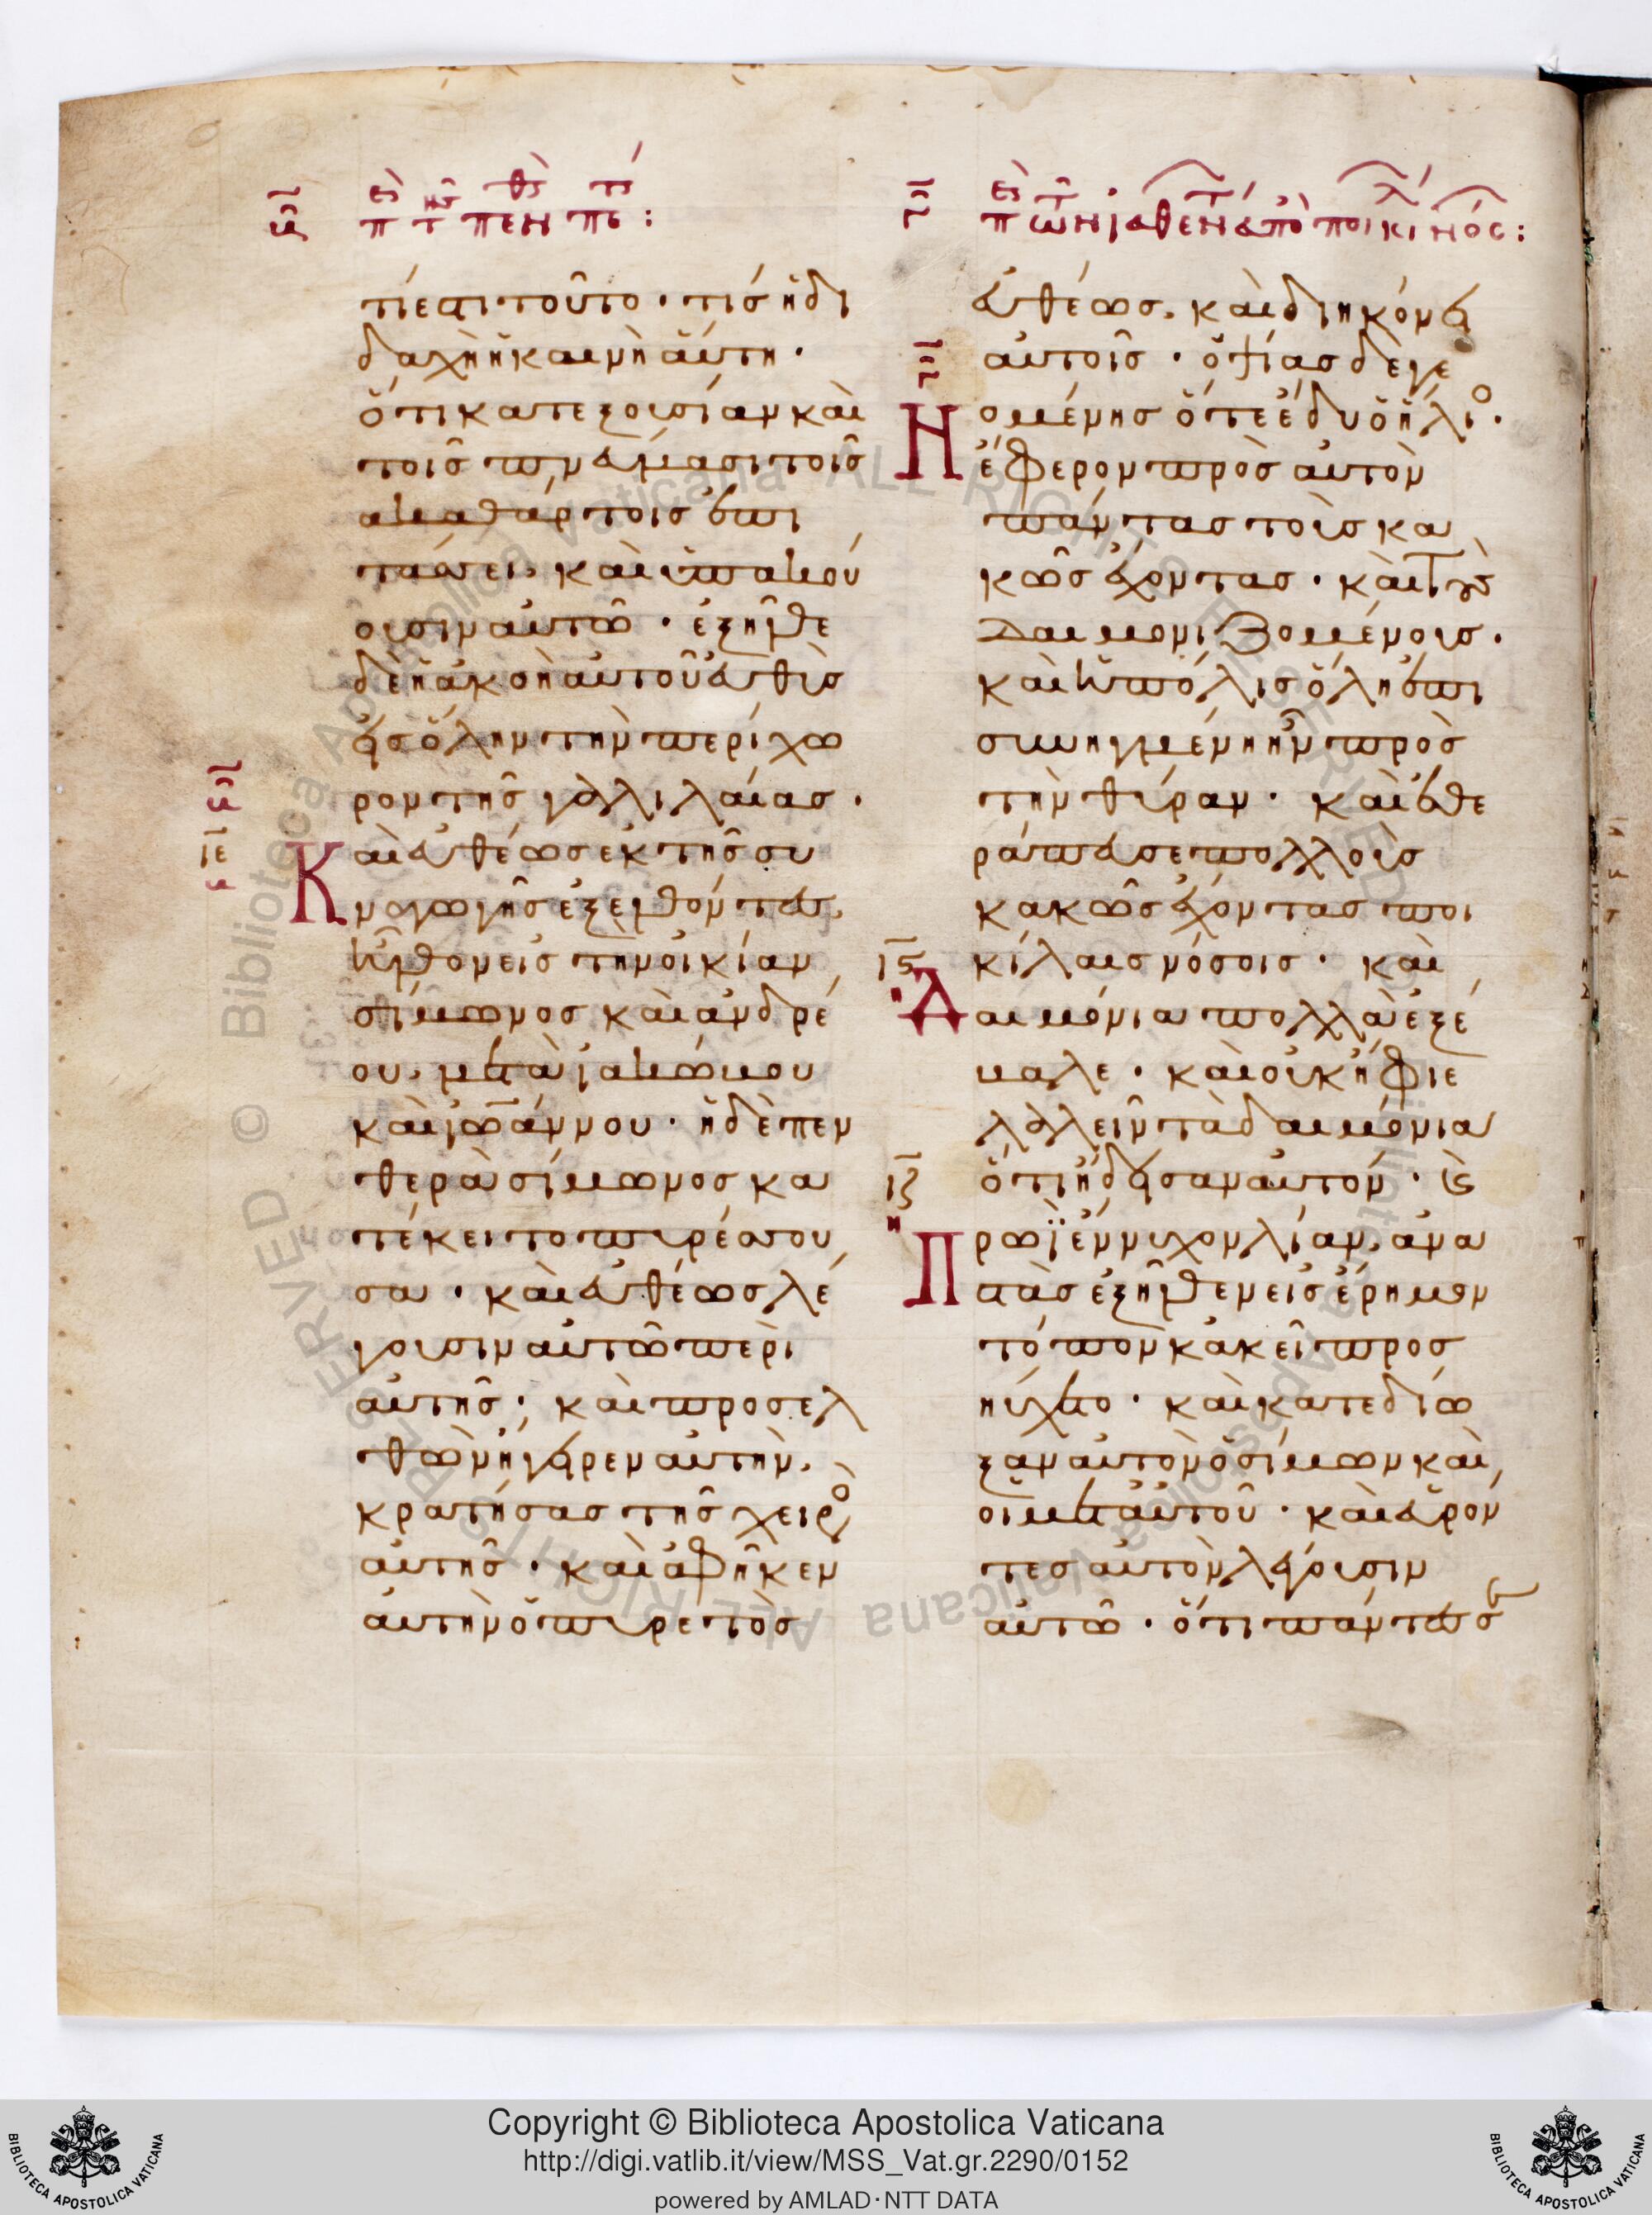 τί ἐστι τοῦτο · τίς ἡ δι
δαχὴ ἡ καινὴ αὕτη ·
ὅτι κατεξουσίαν καὶ
τοῖς πνεύμασι τοῖς
ἀκαθάρτοις ἐπι
τάσσει, καὶ ὑπακού
ουσιν αὐτῶ · ἐξῆλθε
δὲ ἡ ἀκοὴ αὐτοῦ εὐθὺς
εἰς ὅλην τὴν περίχω
ρον τῆς γαλιλαίας ·
ιε
Καὶ εὐθέως ἐκ τῆς συ
ναγωγῆς ἐξελθόντες,
ἦλθον εἰς τὴν οἰκίαν
σίμωνος καὶ ἀνδρέ
ου, μετὰ ἰακώβου
καὶ ἰωάννου · ἡ δὲ πεν
θερὰ σίμωνος κα
τέκειτο πυρέσσου
σα · καὶ εὐθέως λέ
γουσιν αὐτῶ περὶ
αὐτῆς · καὶ προσελ
θὼν ἤγειρεν αὐτὴν,
κρατήσας τῆς χειρὸ
αὐτῆς · καὶ ἀφῆκεν
αὐτὴν ὁ πυρετὸς
εὐθέως, καὶ διηκόνει
αὐτοῖς · ὀψίας δὲ γε
νομένης ὅτε ἔδυ ὁ ἥλιο ·
ἔφερον πρὸς αὐτὸν
πάντας τοὺς κα
κῶς ἔχοντας · καὶ τοὺς
δαιμονιζομένους ·
καὶ ἡ πόλις ὅλη ἐπι
συνηγμένη ἦν πρὸς
τὴν θύραν · καὶ ἐθε
ράπευσε πολλοὺς
κακῶς ἔχοντας ποι
ιϛ κίλαις νόσοις · καὶ
Δαιμόνια πολλὰ ἐξέ
βαλε · καὶ οὐκ ἤφιε
λαλεῖν τὰ δαιμόνια
ιζ ὅτι ἤδεισαν αὐτόν · καὶ
Πρωῒ ἔννυχον λίαν, ἀνα
στὰς ἐξῆλθεν εἰς ἔρημον
τόπον κἀκεῖ προσ
ηύχετο · καὶ κατεδίω
ξαν αὐτὸν ὁ σίμων καὶ
οἱ μετ' αὐτοῦ · καὶ εὑρόν
τες αὐτὸν λέγουσιν
αὐτῶ · ὅτι πάντες σε
Copyright © Biblioteca Apostolica Vaticana
http://digi.vatlib.it/view/MSS_Vat.gr.2290/0152
powered by AMLAD·NTT DATA
BIBLIOTECA APOSTOLICA VATICANA
BIBLIOTECA APOSTOLICA VATICANA